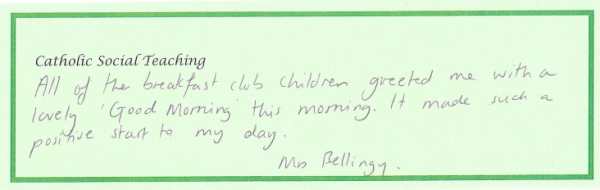 Catholic Social Teaching
All of the breakfast club children greeted me with a
lovely 'Good Morning' this morning. It made such a
positive start to my day.
Mrs Bellingy.